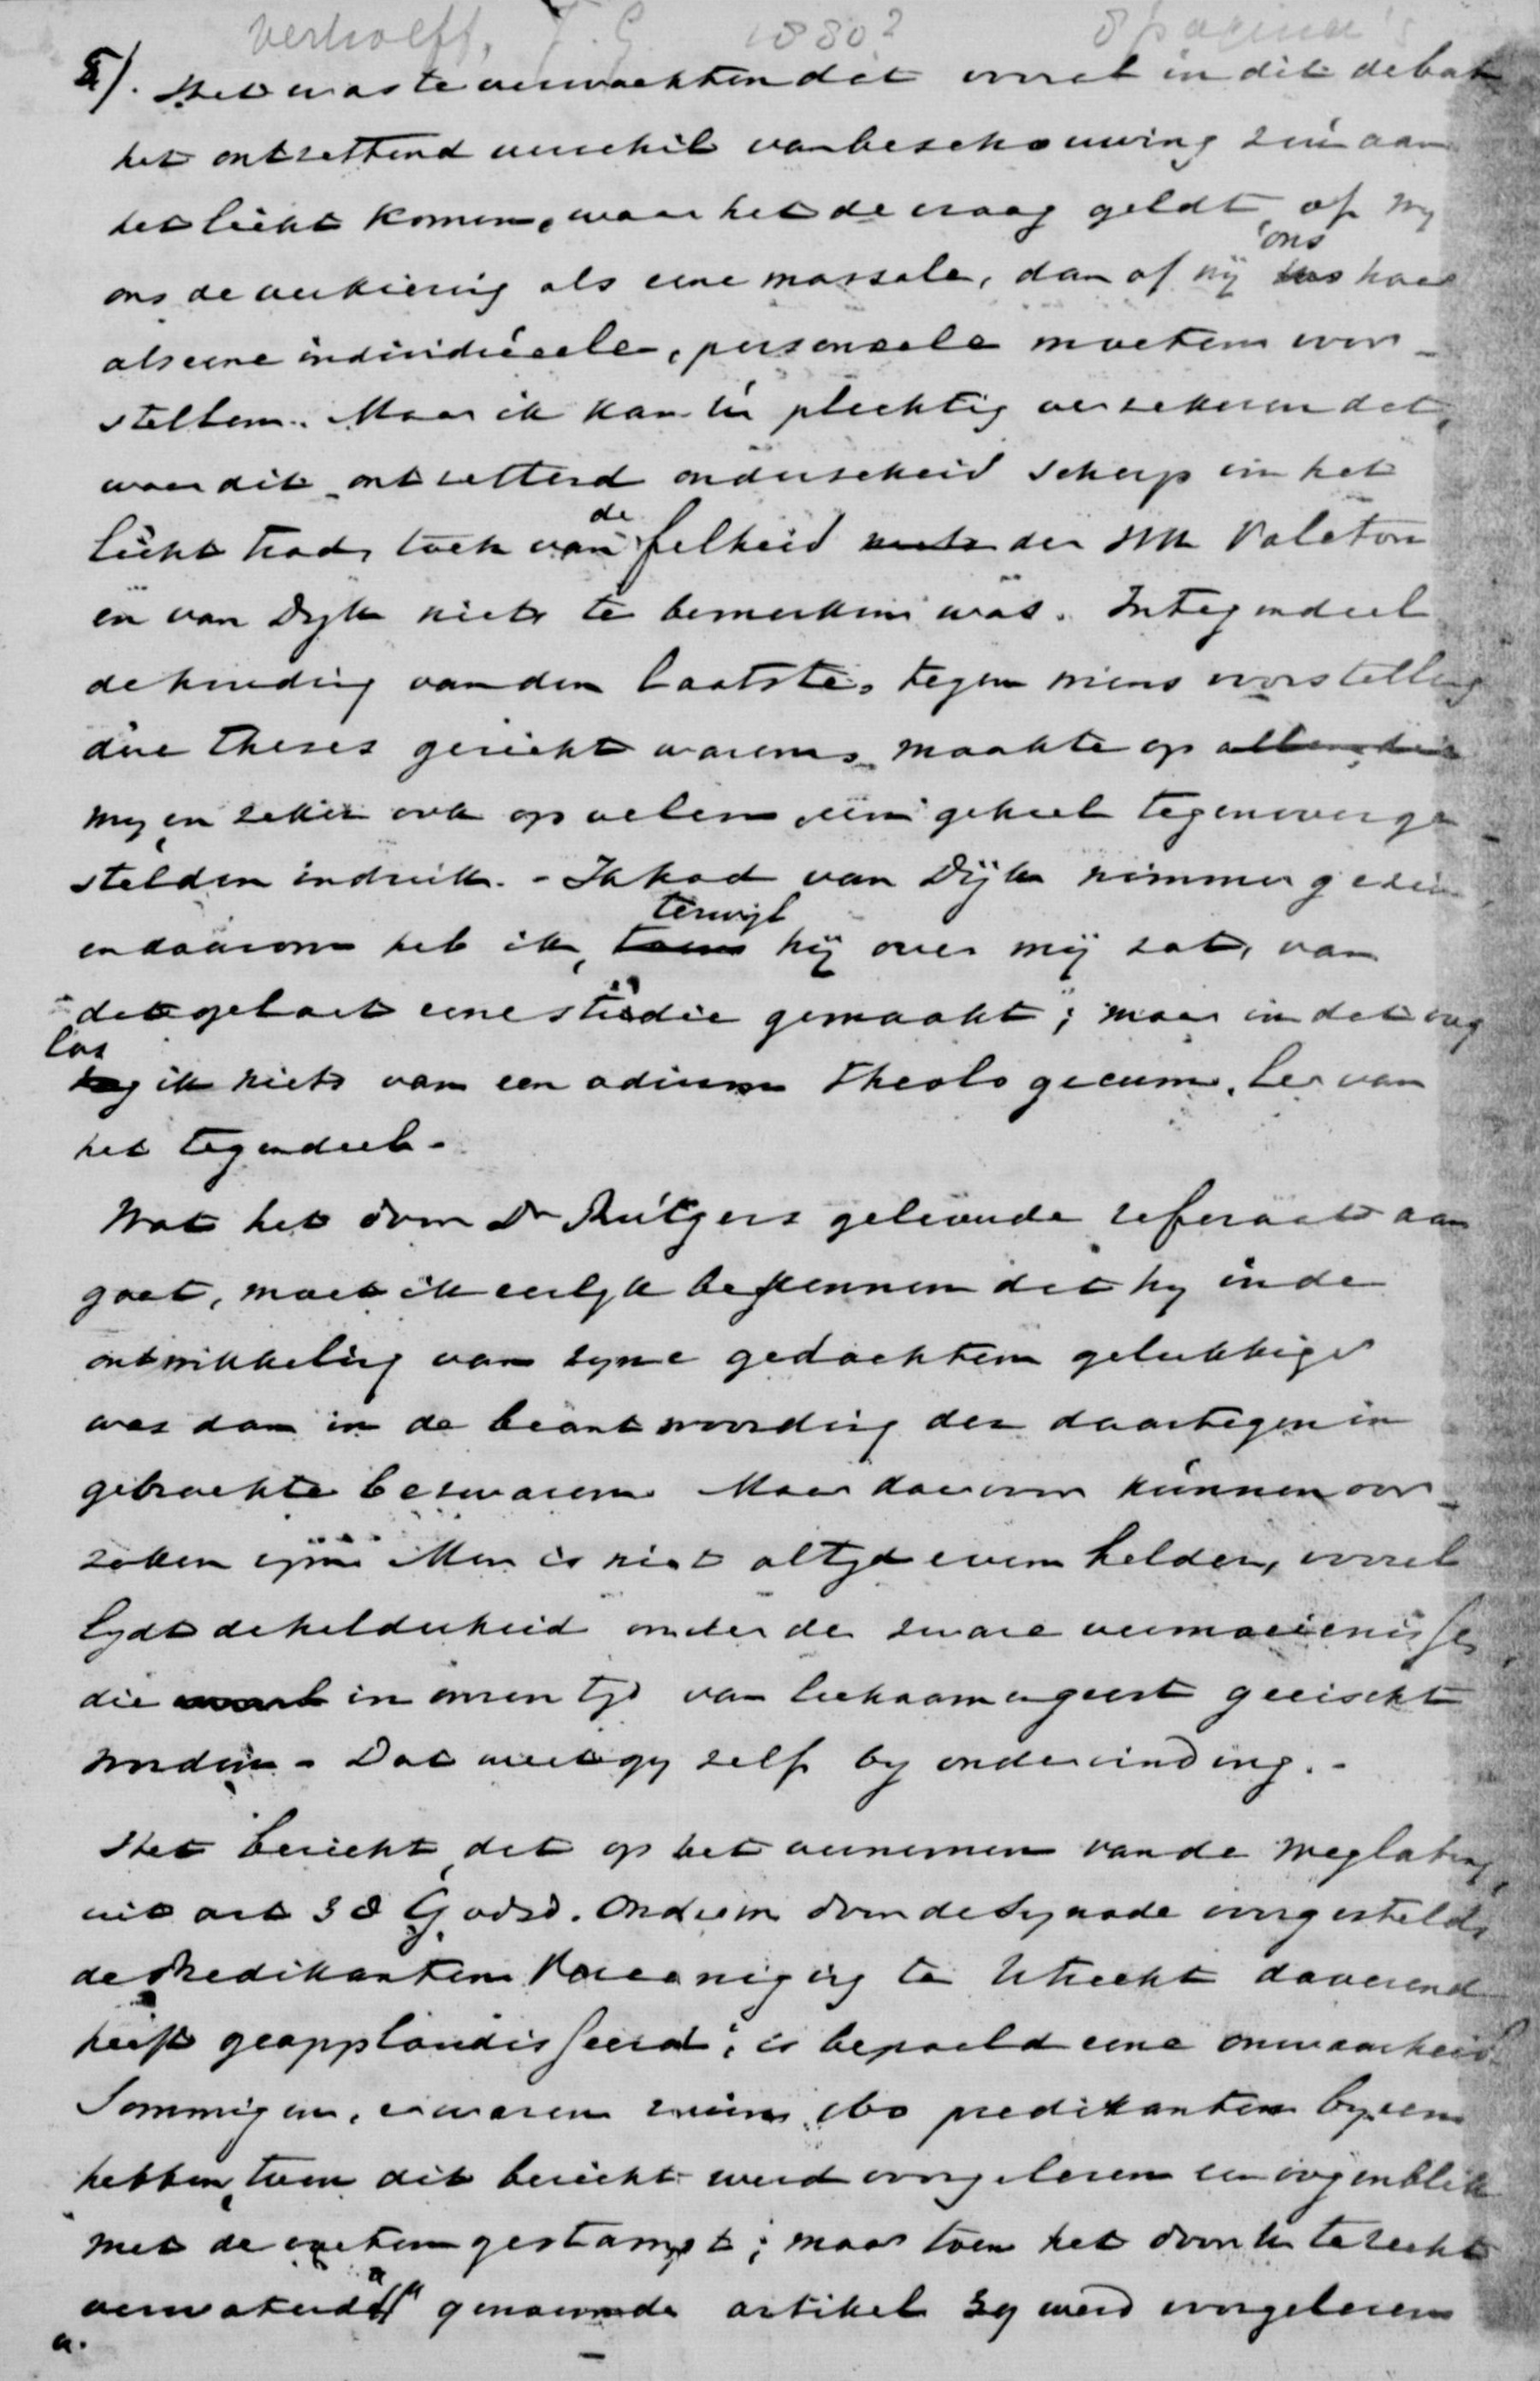 Verhoeff, J. G. 1880? 8 pagina's
2/. Het was te verwachten dat vooral in dit debat
het ontzettend verschil van beschouwing zou aan
het licht komen, waar het de vraag geldt, of wy
ons de verkiezing als eene massale, dan of wij ons haar
als eene individuëele, personeele moeten voor-
stellen. Maar ik kan U plechtig verzekeren dat,
waar dit ontzettend onderscheid scherp in het
licht trad, toch van de felheid der HH Valeton
en van Dyk niets te bemerken was. Integendeel
de houding van den laatste, tegen wiens voorstelling
die theses gericht waren, maakte op
my en zeker ook op velen een geheel tegenoverge-
stelden indruk. - Ik had van Dijk nimmer gezien
en daarom heb ik, terwijl hij over mij zat, van
dat gelaat eene studie gemaakt; maar in dat oog
las ik niets van een odium Theologicum. Eer van
het tegendeel -
Wat het door Dr Rutgers geleverde referaat aan
gaat, moet ik eerlyk bekennen dat hy in de
ontwikkeling van zyne gedachten gelukkiger
was dan in de beantwoording der daartegen in
gebrachte bezwaren. Maar daarvoor kunnen oor-
zaken zyn. Men is niet altyd even helder, vooral
lydt de helderheid onder de zware vermoeienissen,
die in onzen tyd van lichaam en geest geeischt
worden - Dat weet gy zelf by ondervinding. -
Het bericht, dat op het vernemen van de weglating,
uit art 38 Godsd. Onderw. door de Synode voorgesteld,
de Predikanten Vereeniging te Utrecht daverend
heeft geapplaudisseerd, is bepaald eene onwaarheid.
Sommigen, er waren ruim 160 predikanten byeen
hebben, toen dit bericht werd voorgelezen een oogenblik
met de voeten gestampt; maar toen het door U te recht
"verwaterd" genoemde artikel 39 werd voorgelezen
a.